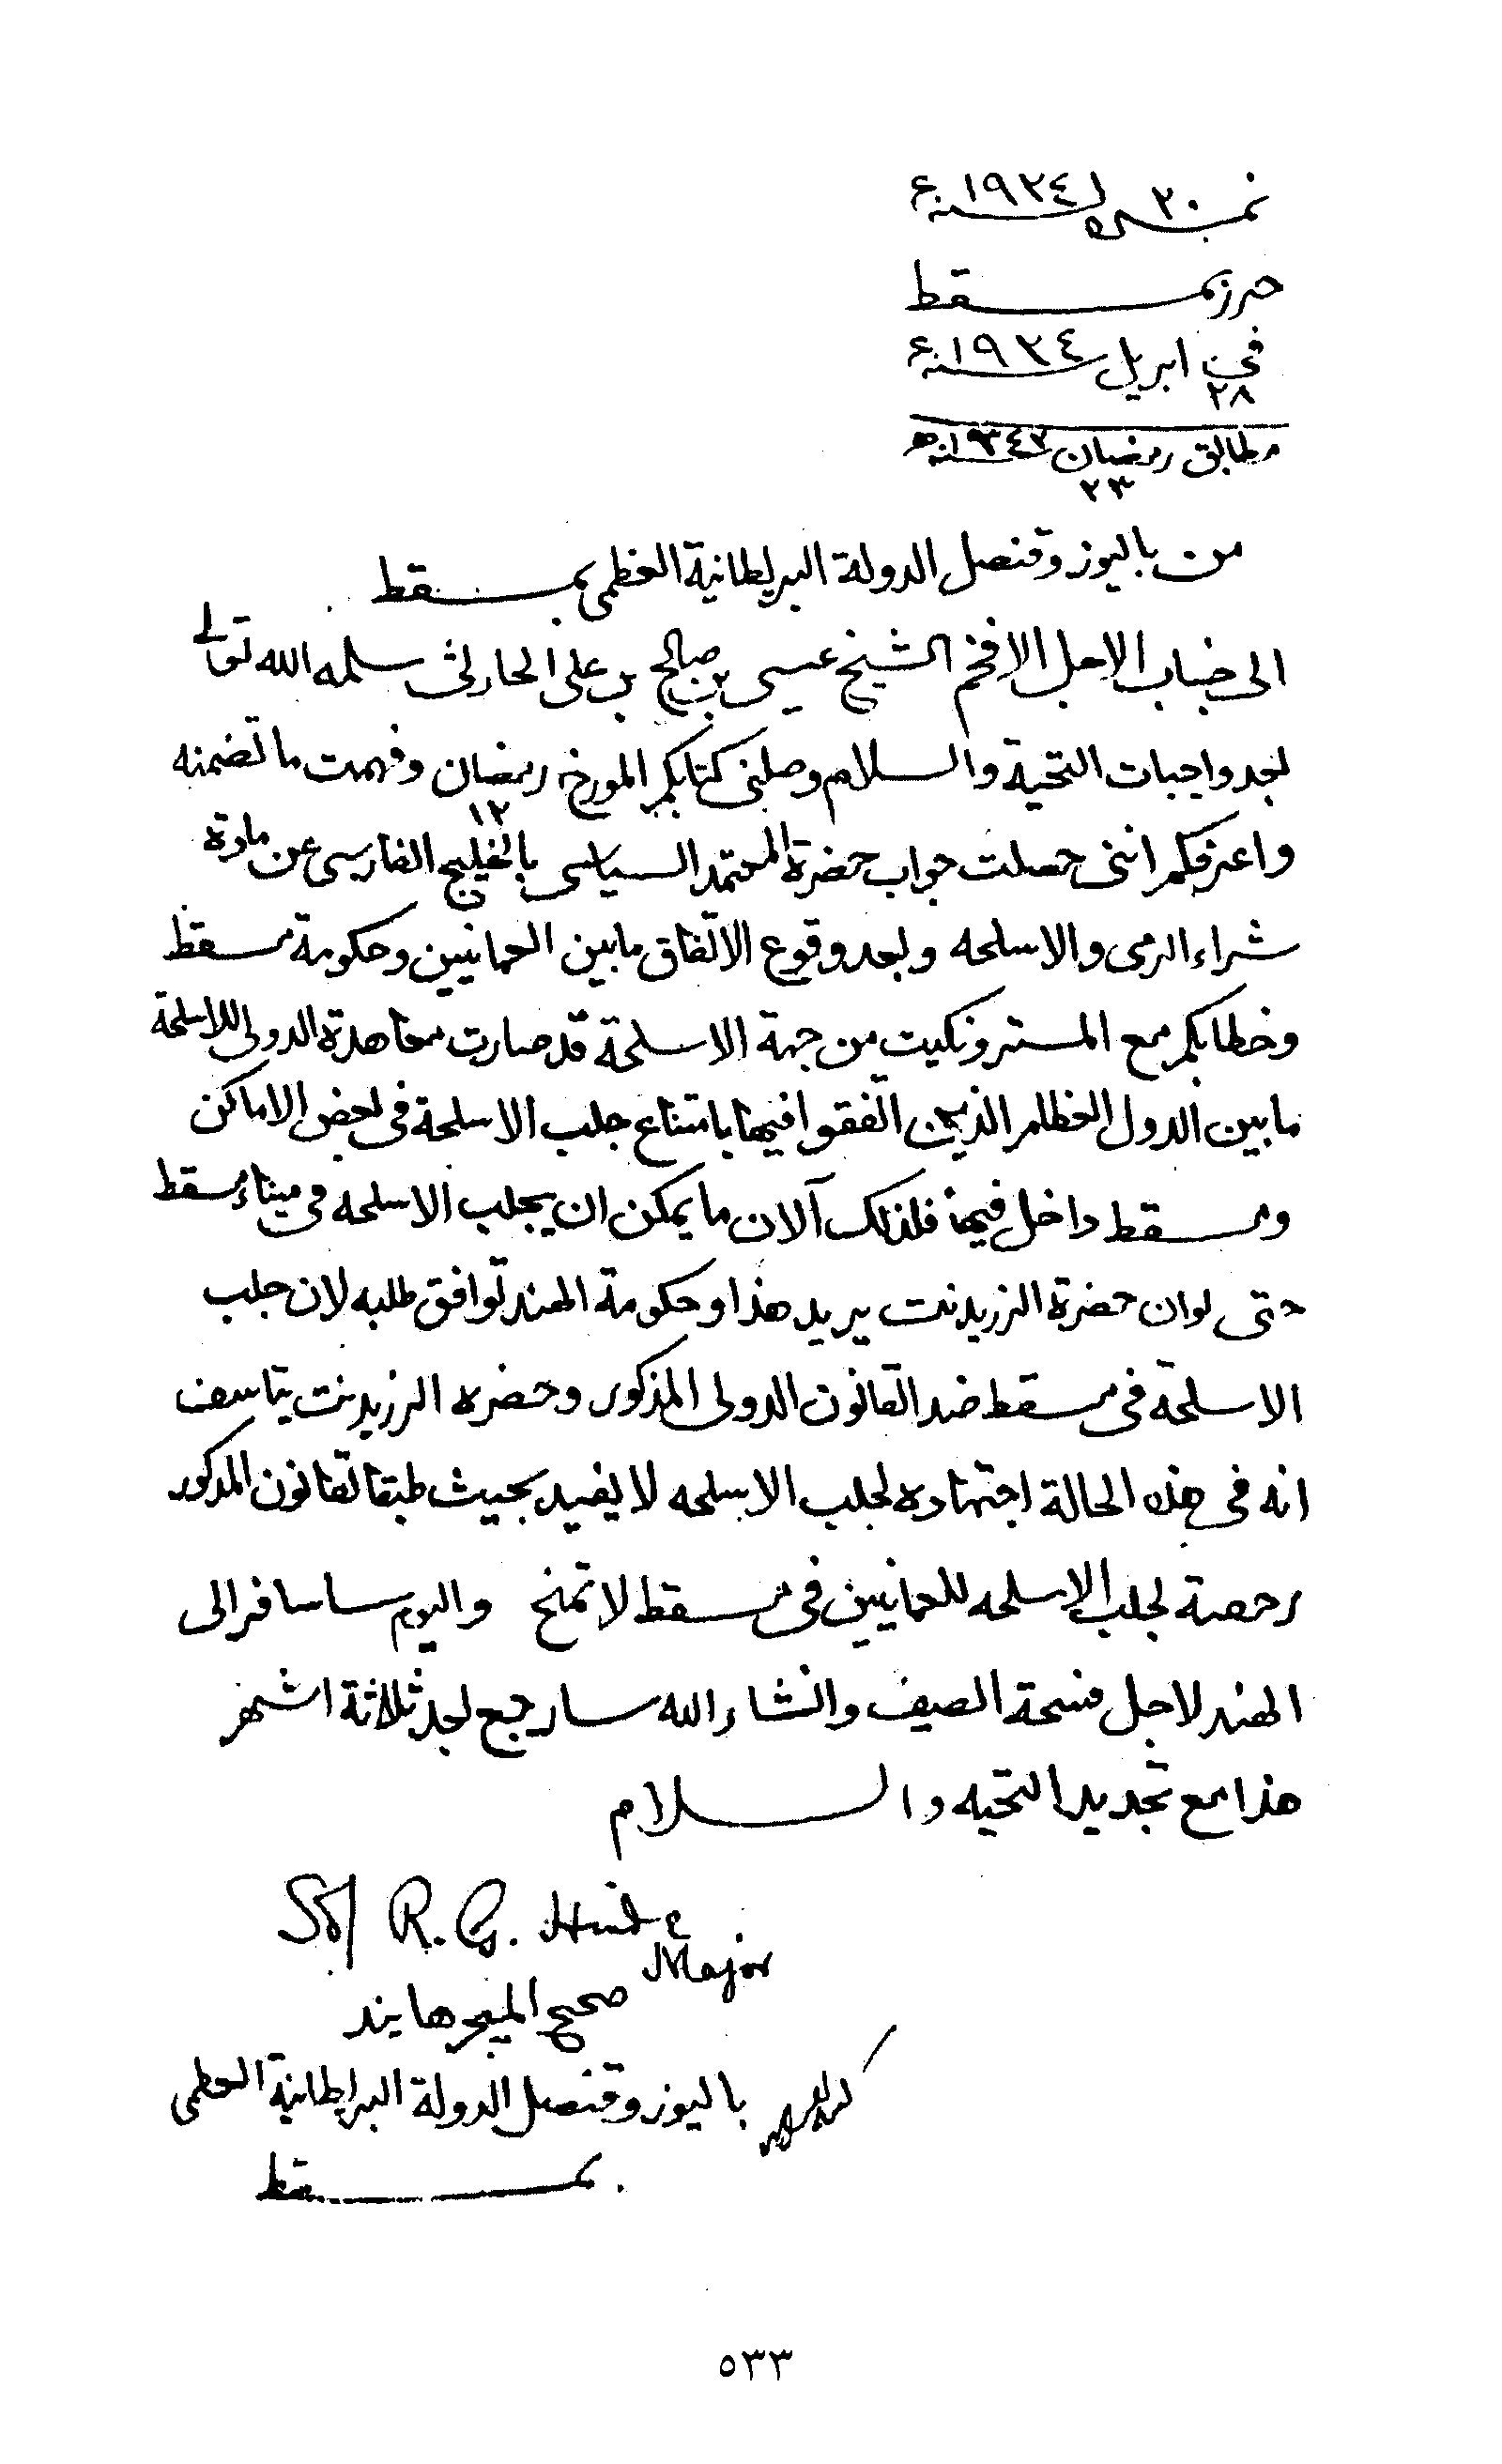 نمبر ٢٠ لسنة ١٩٢٤ء
حرر بمسقط
في ٢٨ ابريل سنة ١٩٢٤ء
مطابق ٢٣ رمضان سنة ١٣٤٢ھ
من باليوز وقنصل الدولة البريطانية العظمى بمسقط
الى جناب الاجل الافخم الشيخ عيسى بن صالح بن على الحارثى سلمه الله تعالى
بعد واجبات التحية والسلام وصلنى كتابكم المورخ ١٢ رمضان وفهمت ما تضمنه
واعرفكم اننى حصلت جواب حضرة المعتمد السياسى بالخليج الفارسى عن مادة
شراء الرمى والاسلحه وبعد وقوع الاتفاق ما بين العمانيين وحكومة مسقط
وخطابكم مع المستر ونكيت من جهة الاسلحة قد صارت معاهدة الدولى للاسلحة
ما بين الدول العظام الذين اتفقوا فيها بامتناع جلب الاسلحة فى بعض الاماكن
ومسقط داخل فيها فلذلك آلان ما يمكن ان يجلب الاسلحه فى ميناء مسقط
حتى لو ان حضرة الرزيدنت يريد هذا وحكومة الهند توافق طلبه لان جلب
الاسلحة فى مسقط ضد القانون الدولى المذكور وحضره الرزيدنت يتاسف
انه فى هذه الحالة اجتهاده لجلب الاسلحه لا يفيد بحيث طبقا لقانون المذكور
رخصة لجلب الاسلحه للعمانيين فى مسقط لا تمنح واليوم ساسافر الى
الهند لاجل فسحة الصيف وانشاء الله سارجع بعد ثلاثة اشهر
هذا مع تجديد التحيه والسلام
Sd/ R.G. Hinde
Major
صحيح الميجر هايند
باليوز وقنصل الدولة البريطانية العظمى
بمسقط
٥٣٣